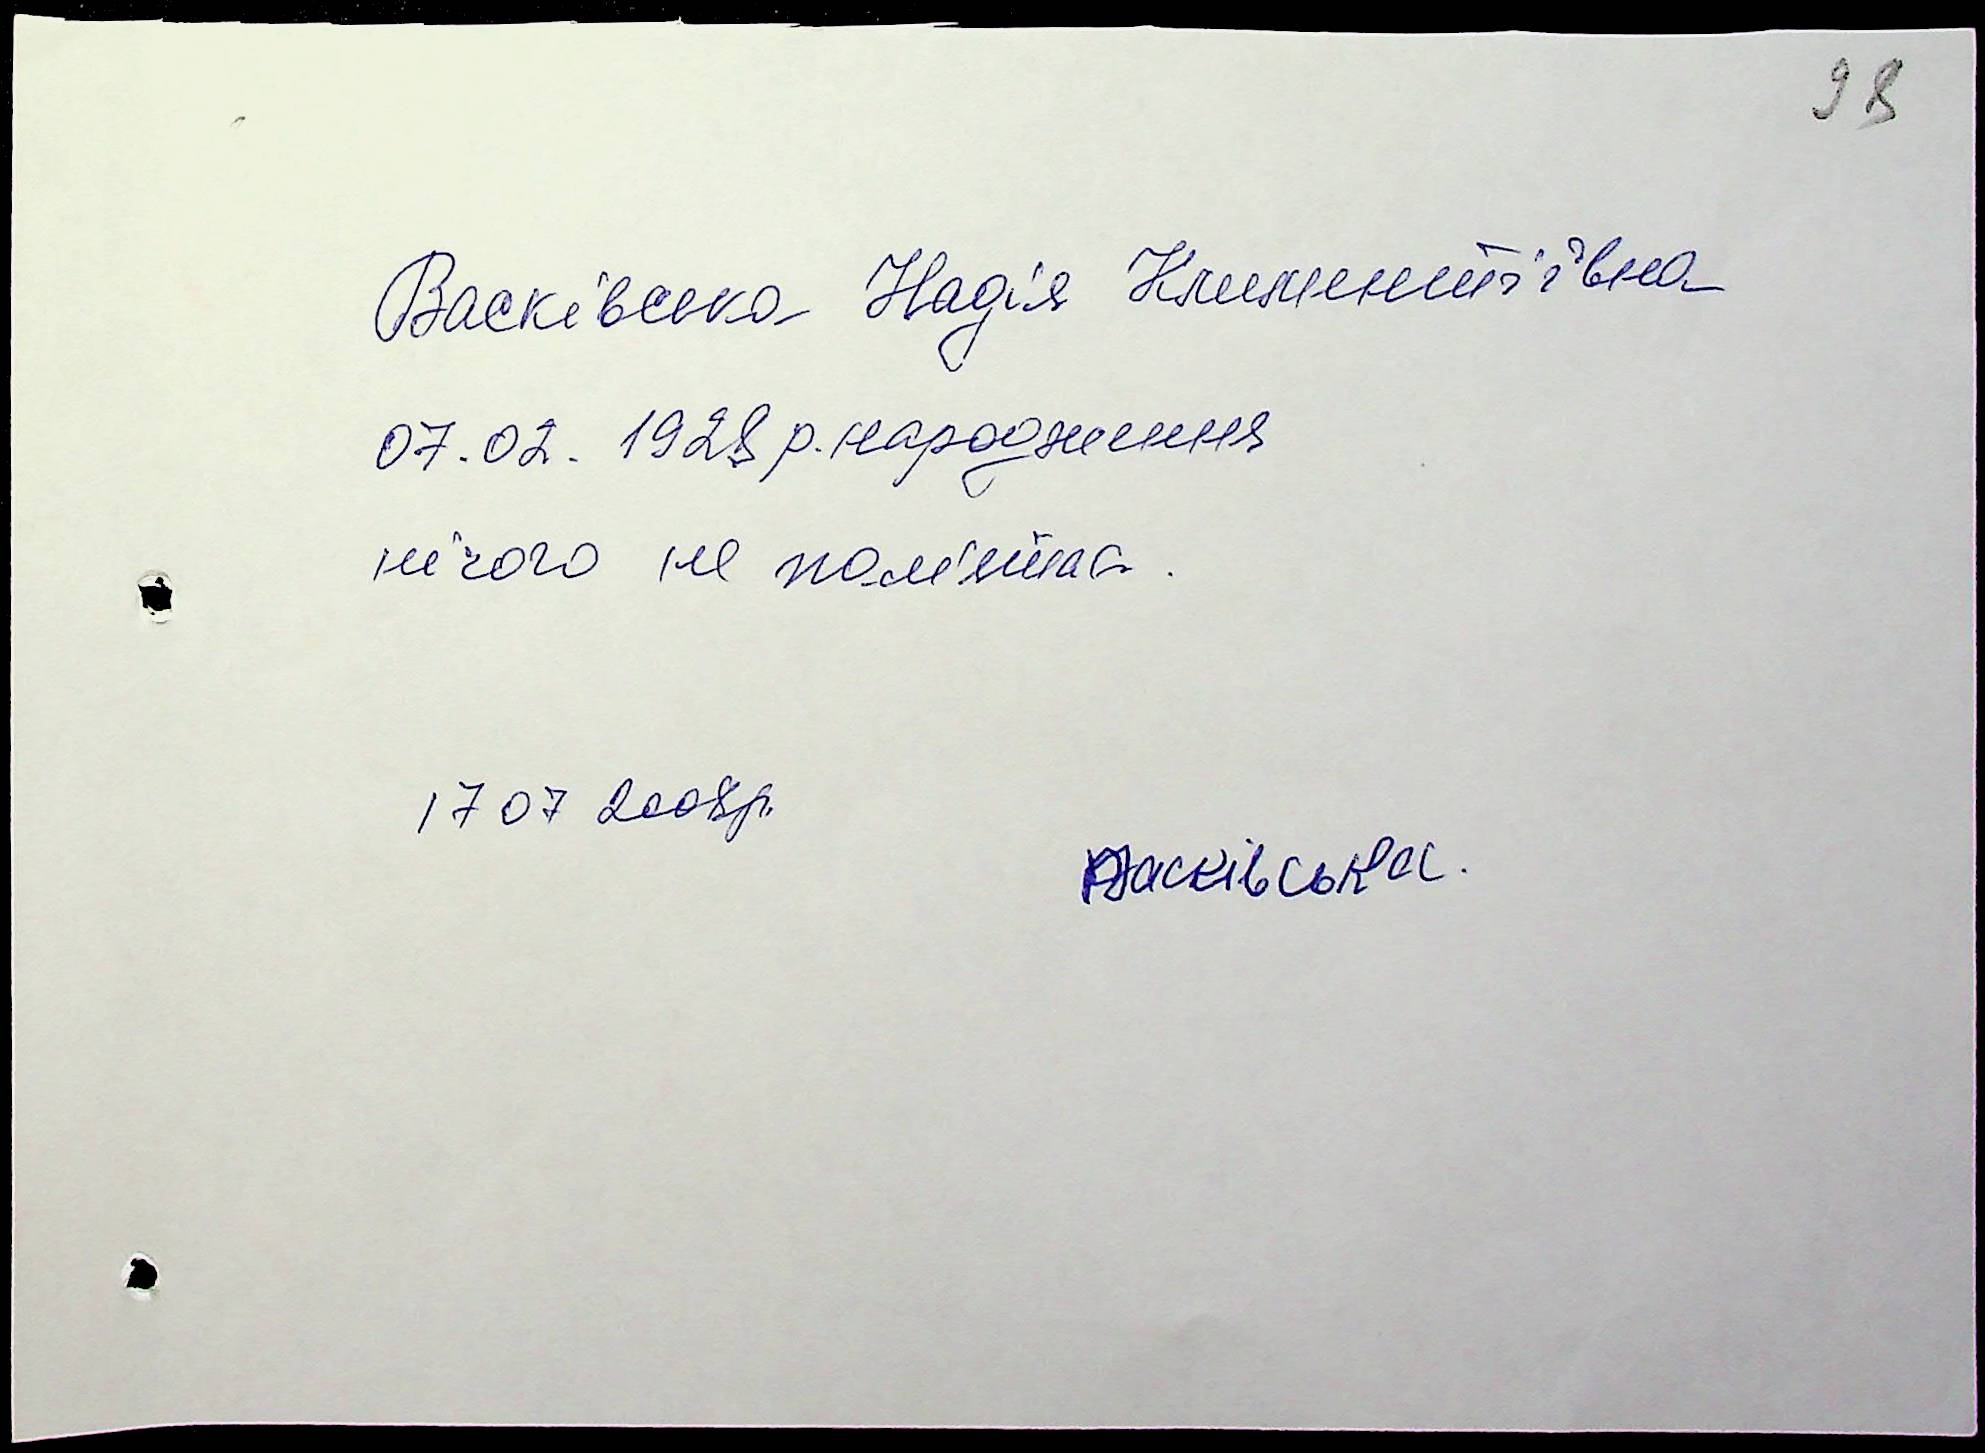 98
Васківська Надія Климентіївна
07.02. 1928 р. народження
нічого не пам'ятає.
17 07 2008р.
Васківська.